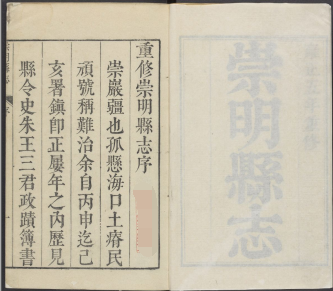 重修崇明縣志序
崇巖疆也孤懸海口土瘠民
頑號稱難治余自丙申迄己
亥署鎮卽正屢年之內歷見
縣令史朱王三君政蹟簿書
崇明縣志